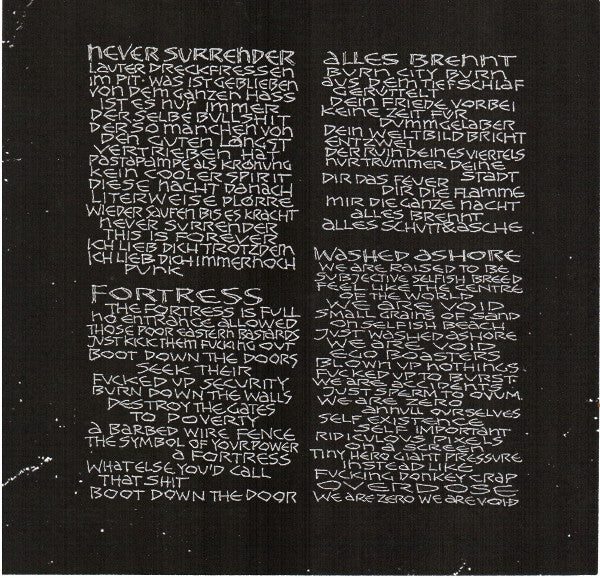 NEVER SURRENDER
LAUTER DRECKFRESSEN
IM PIT. WAS IST GEBLIEBEN
VON DEM GANZEN HASS
IST ES NUR IMMER
DERSELBE BULLSHIT
DER SO MANCHEN VON
DEN GUTEN LÄNGST
VERTRIEBEN HAT
PASTAPAMPE ALS KRÖNUNG
KEIN COOLER SPIRIT
DIESE NACHT DANACH
LITERWEISE PLÖRRE
WIEDER SAUFEN BIS ES KRACHT
NEVER SURRENDER
THIS IS FOREVER
ICH LIEB DICH TROTZDEM
ICH LIEB DICH IMMERNOCH
PUNK
FORTRESS
THE FORTRESS IS FULL
NO ENTRANCE ALLOWED
THOSE POOR EASTERN BASTARDS
JUST KICK THEM FUCKING OUT
BOOT DOWN THE DOORS
SEEK THEIR
FUCKED UP SECURITY
BURN DOWN THE WALLS
DESTROY THE GATES
TO POVERTY
A BARBED WIRE FENCE
THE SYMBOL OF YOUR POWER
A FORTRESS
WHAT ELSE YOU'D CALL
THAT SHIT
BOOT DOWN THE DOOR
ALLES BRENNT
BURN CITY BURN
AUS DEM TIEFSCHLAF
GERÜTTELT
DEIN FRIEDE VORBEI
KEINE ZEIT FÜR
DUMMGELABER
DEIN WELTBILD BRICHT
ENTZWEI
DER RUIN DEINES VIERTELS
NUR TRÜMMER DEINE
STADT
DIR DAS FEVER
DIR DIE FLAMME
MIR DIE GANZE NACHT
ALLES BRENNT
ALLES SCHUTT & ASCHE
WASHED ASHORE
WE ARE RAISED TO BE
SUBJECTIVE SELFISH BREED
FEEL LIKE THE CENTRE
OF THE WORLD
WE ARE VOID
SMALL GRAINS OF SAND
ON SELFISH BEACH
JUST WASHED ASHORE
WE ARE VOID
EGO BOASTERS
BLOWN UP NOTHINGS
FUCKED UP TO BURST
WE ARE ACCIDENTS
JUST SPERM TO OVUM.
WE ARE ZERO
ANNULL OURSELVES
SELF EXISTENCE
SELF IMPORTANT
RIDICULOUS PIXELS
ON A SCREEN
TINY HERO GIANT PRESSURE
INSTEAD LIKE
FUCKING DONKEY CRAP
OVERDOSE
WE ARE ZERO WE ARE VOID